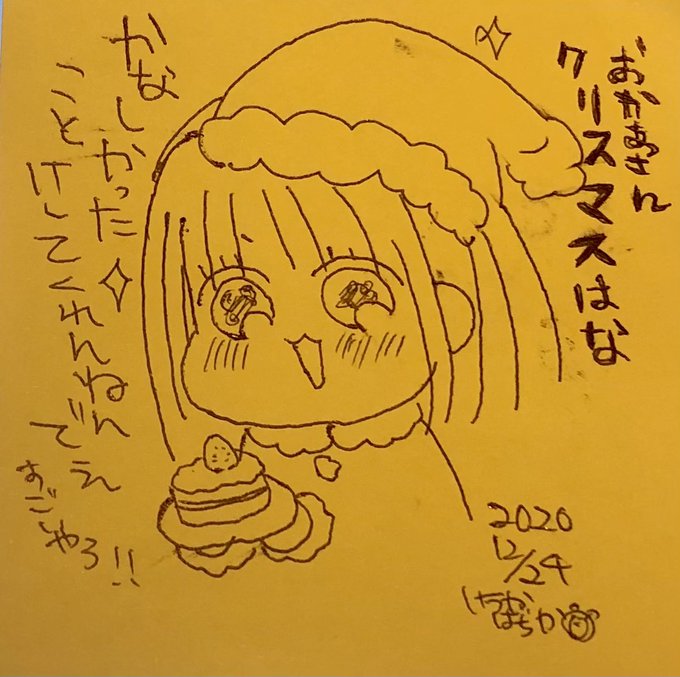 おかあさん
クリスマスはな
かなしかった
こと
けしてくれんねん
でえ
すごいやろ!!
2020
12/24